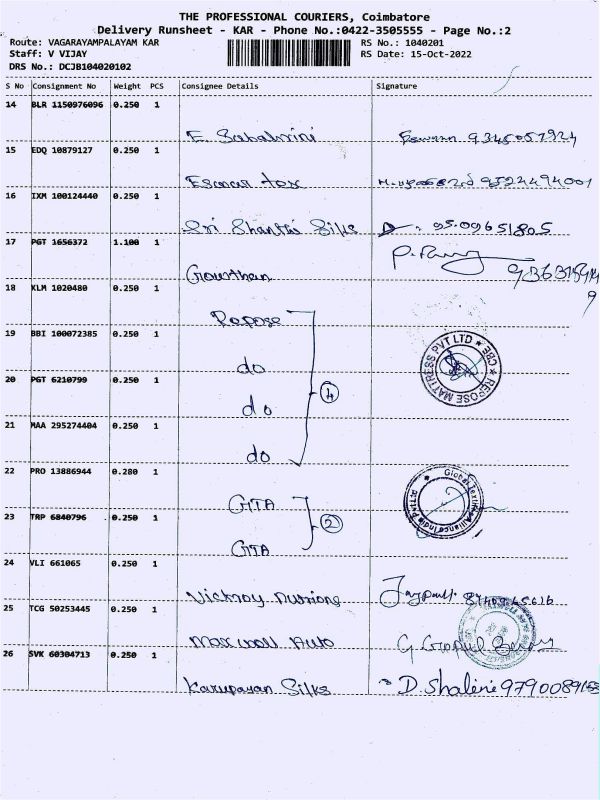 THE PROFESSIONAL COURIERS, Coimbatore
Delivery Runsheet - KAR - Phone No.:0422-3505555 - Page No.:2
Route: VAGARAYAMPALAYAM KAR RS No.: 1040201
Staff: V VIJAY RS Date: 15-Oct-2022
DRS No.: DCJB104020102
S No Consignment No Weight PCS Consignee Details Signature
14 BLR 1150976096 0.250 1
15 EDQ 10879127 0.250 1
16 IXM 100124440 0.250 1
Sri Shanthi Silks 95.09651805
17 PGT 1656372 1.100 1
Gowtham
18 KLM 1020480 0.250 1
Repose
19 BBI 100072385 0.250 1
do
REPOSE MATTRESS PVT LTD ★ CBE ★
20 PGT 6210799 0.250 1
do
4
21 MAA 295274404 0.250 1
do
22 PRO 13886944 0.280 1
GTA
Global Textile Alliance India Pvt Ltd
23 TRP 6840796 0.250 1
2
GTA
24 VLI 661065 0.250 1
25 TCG 50253445 0.250 1
Maxwell Auto
26 SVK 60304713 0.250 1
Karupayan Silks D. Shalini